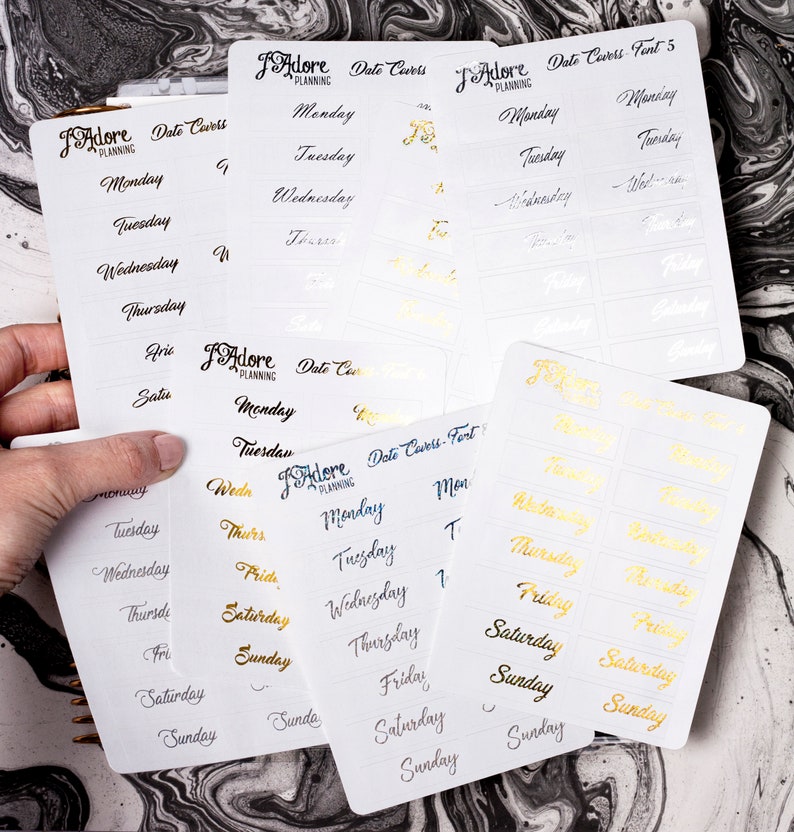 J'Adore
PLANNING
Date Covers
Monday
Tuesday
Wednesday
J'Adore
PLANNING
Date Covers - Font 5
Monday Monday
Tuesday Tuesday
Wednesday Wednesday
Thursday Thursday
Friday Friday
Saturday Saturday
Sunday Sunday
J'Adore
PLANNING
Date Covers - Font
Monday
Tuesday
Wednesday
Thursday
J'Adore
PLANNING
Date Covers - Font 6
Monday Monday
Tuesday
Thurs
Friday
Saturday
Sunday
J'Adore
PLANNING
Date Covers - Font 8
Monday
Tuesday
Wednesday
Thursday
Friday
Saturday
Sunday Sunday
J'Adore
PLANNING
Date Covers - Font
Monday Monday
Tuesday Tuesday
Wednesday Wednesday
Thursday Thursday
Friday Friday
Saturday Saturday
Sunday Sunday
Monday
Tuesday
Wednesday
Thursd
Saturday
Sunday Sunday